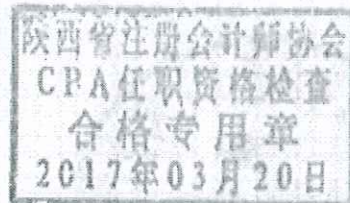 陕西省注册会计师协会
CPA任职资格检查
合格专用章
2017年03月20日